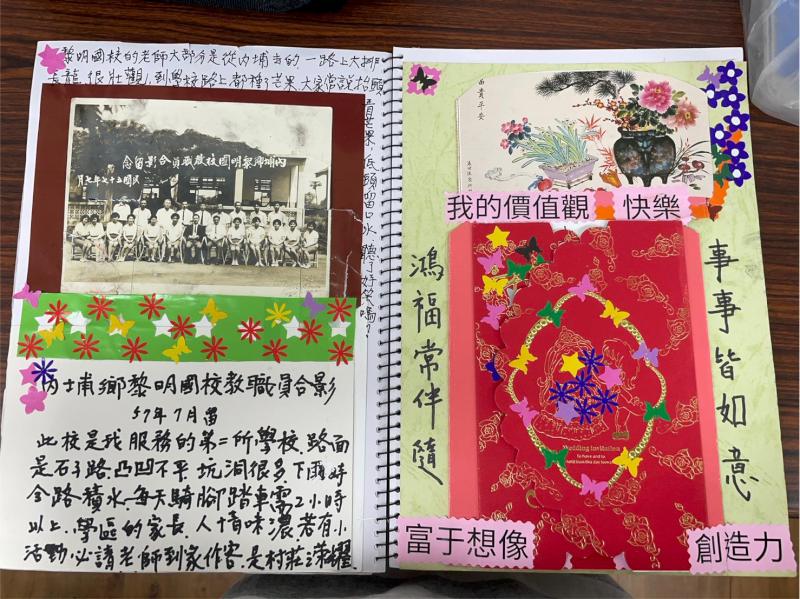 黎明國校的老師大部分是從內埔去的 一路上大排
長龍很壯觀!到學校路上都種了芒果,大家常說抬頭
看芒果,低頭留口水,聽了好笑嗎?
內埔鄉黎明國校教職員合影留念
民國五十七年七月
內埔鄉黎明國校教職員合影
57年7月留
此校是我服務的第二所學校,路面
是石子路,凸凹不平,坑洞很多,下雨時
全路積水,每天騎腳踏車需2小時
以上,學區的家長,人情味濃,若有小
活動必請老師到家作客,是村莊之榮耀
富貴平安
我的價值觀 快樂
鴻福常伴隨
事事皆如意
Wedding invitation
富于想像
創造力